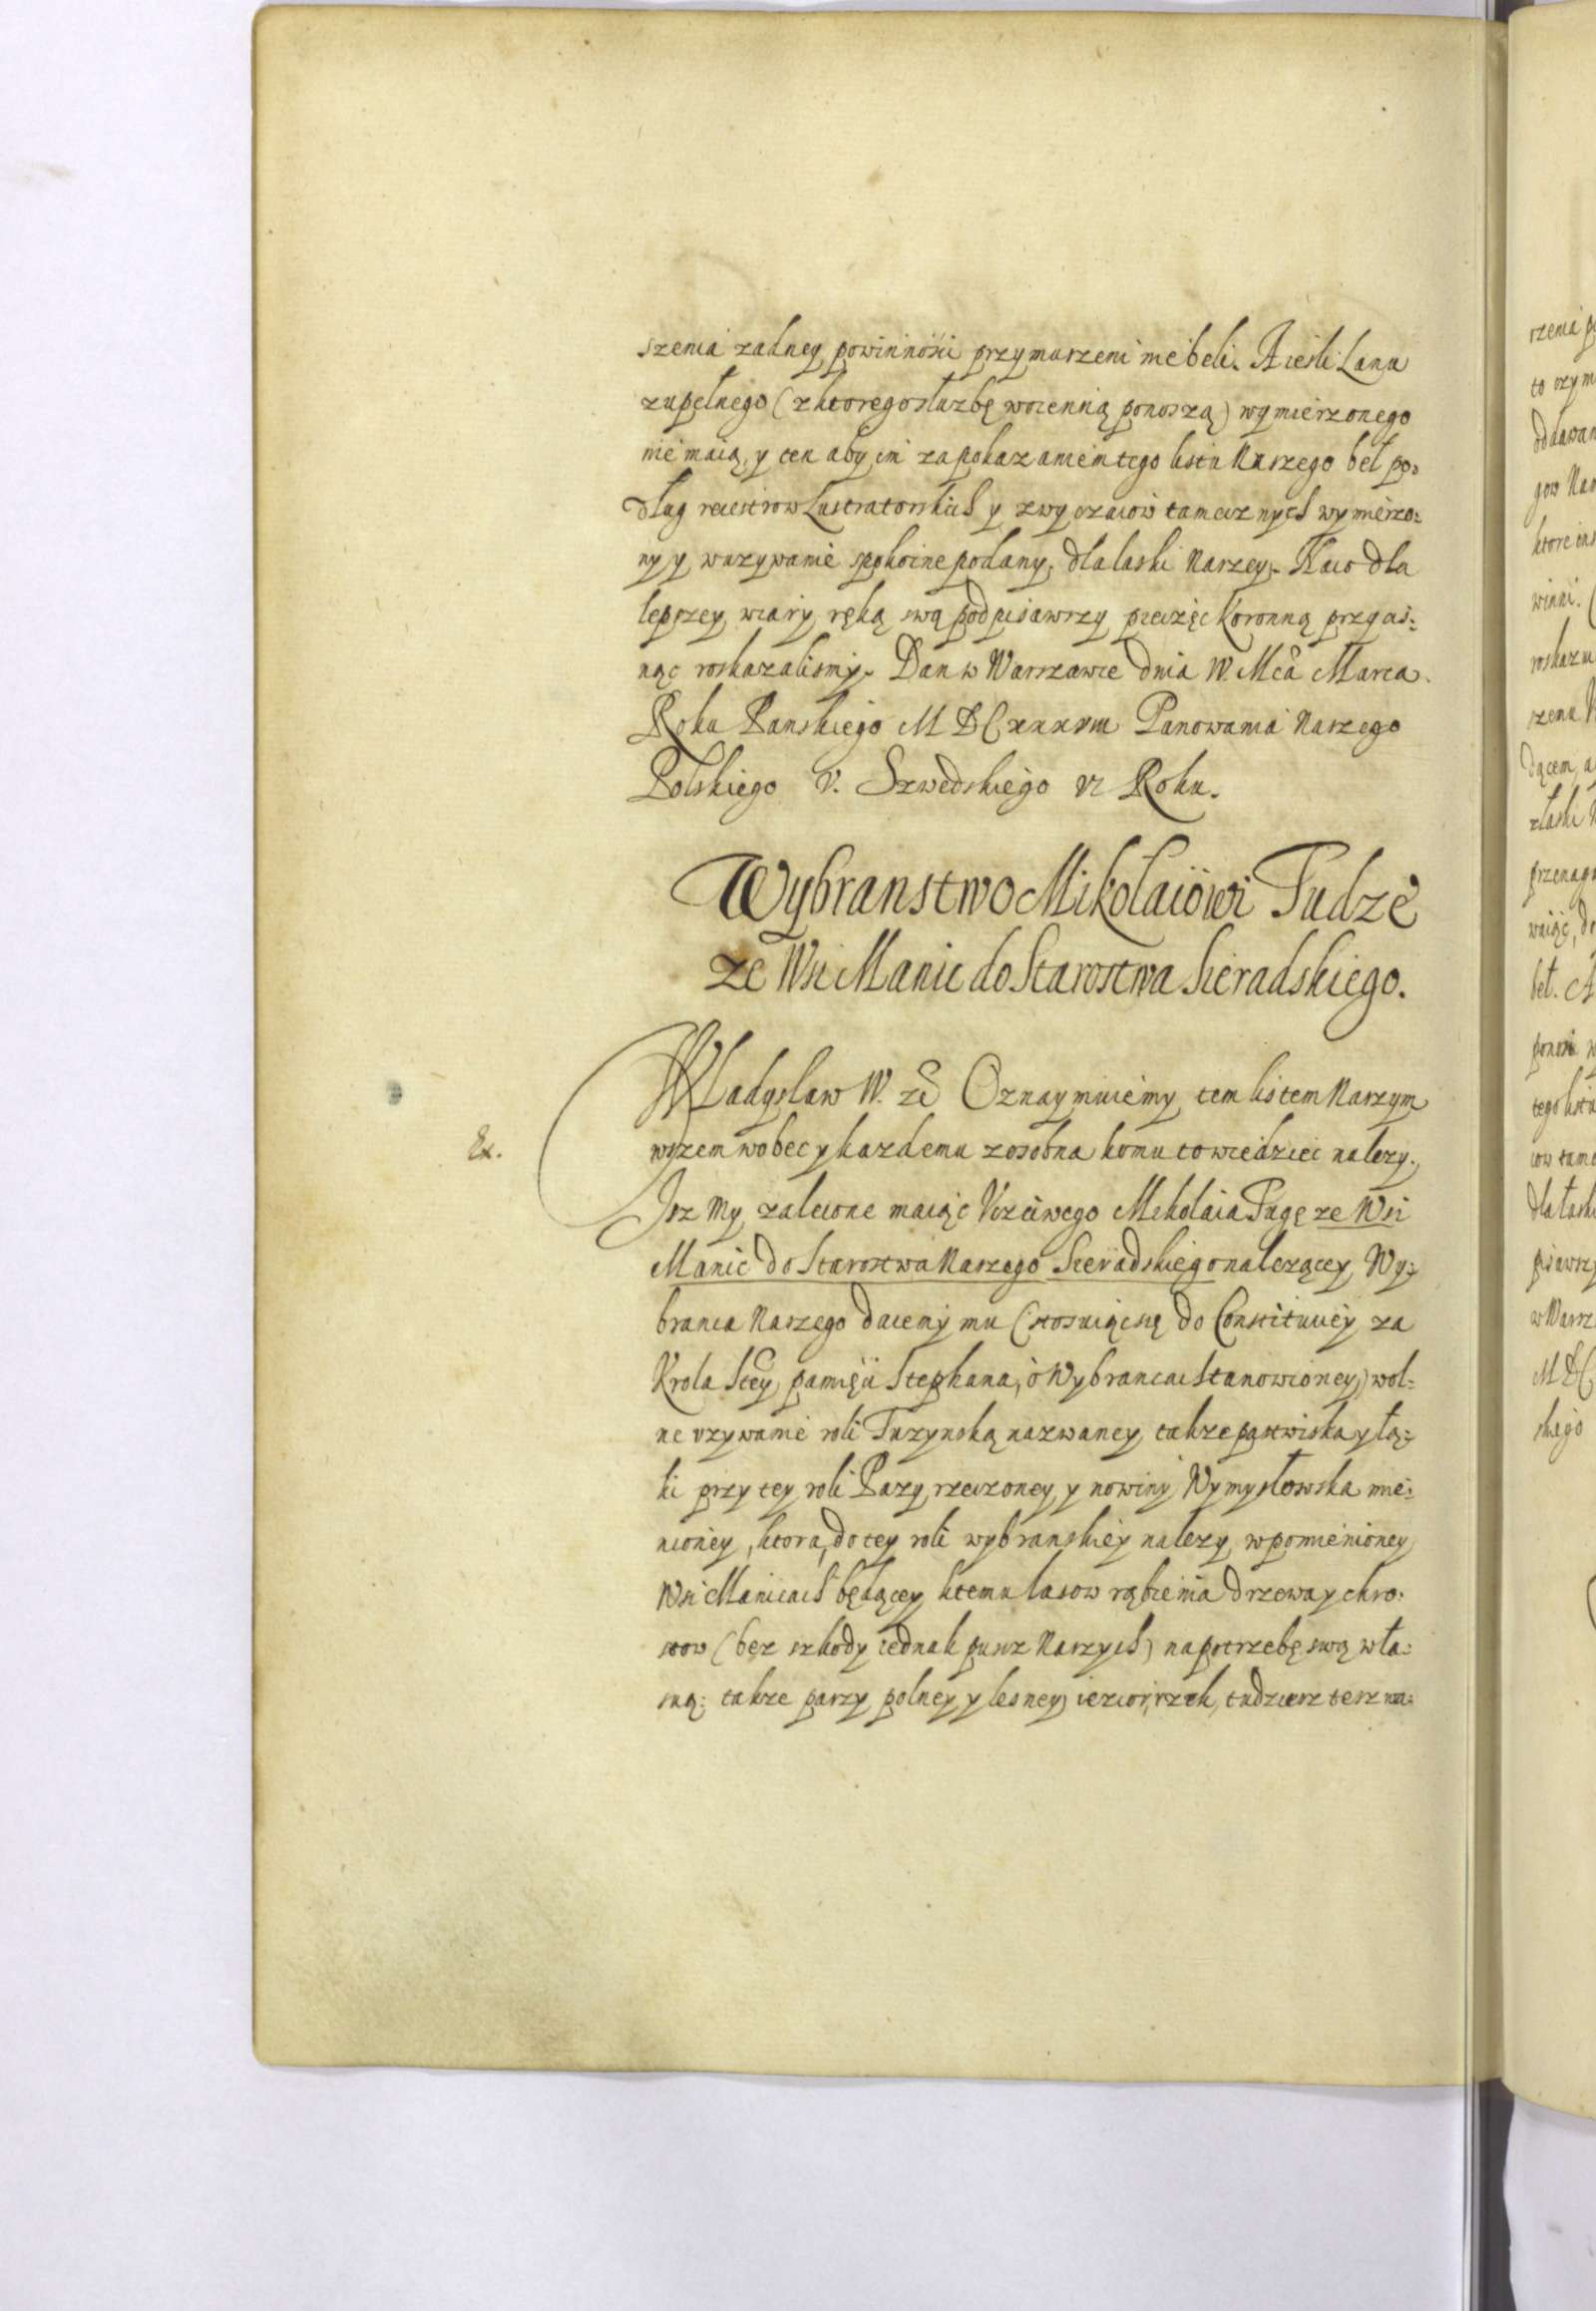 szenia zadney powinności przymuszeni nie beli. A ieśli Lanu
zupełnego (zktorego służbę woienną ponoszą) wymierzonego
nie maią, y ten aby im za pokazaniem tego listu Naszego beł po=
dług reiestrow Lustratorskich y zwyczaiow tamecznych wymierzo=
ny y wuzywanie spokoine podany, dla laski Naszey. Na co dla
lepszey wiary ręką swą podpisawszy pieczęć Koronną przycis=
nąc roskazalismy. Dan w Warszawie dnia W. Mca Marca
Roku Panskiego MDCxxxvIII Panowania Naszego
Polskiego V. Szwedskiego VI Roku.
Wybranstwo Mikolaiowi Fudze
ze Wsi Manic do Starostwa Sieradskiego.
Wladyslaw IV. &c Oznaymuiemy tem listem Naszym
wszem wobec y kazdemu zosobna komu to wiedziec nalezy.
Ex.
Isz My zalecone maiąc Uczciwego Mikolaia Fugę ze Wsi
Manic do Starostwa Naszego Sieradskiego nalezącey, Wy=
branca Naszego daiemy mu (stosuiąc się do Constituciey za
Krola Stey pamięci Stephana, o Wybrancach stanowioney) wol=
ne uzywanie roli Tuzynską nazwaney, takze pastwiska y łą=
ki przy tey roli Pazy rzeczoney, y nowiny Wymysłowska mie=
nioney, ktora, do tey roli wybranskiey nalezy, wpomienioney
Wsi Manicach będącey, ktemu lasow rąbienia drzewa y chro=
stow (bez szkody iednak puscz Naszych) na potrzebę swą wła=
sną: takze paszy polney y lesney iezior, rzek, tudziesz tesz na=